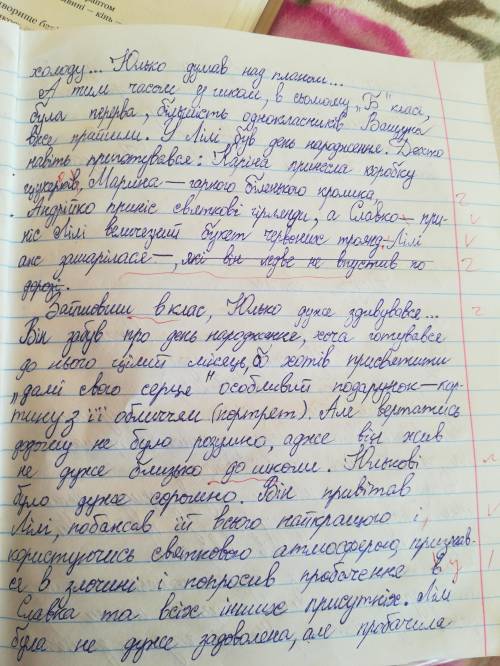 холоду... Юлько думав над планом...
А тим часом у школі, в сьомому „Б" класі,
була перерва, більшість однокласників Вашука
вже прийшли. У Лілі був день народження. Дехто
навіть приготувався: Каріна принесла коробку
цукерків, Марина — гарного біленького кролика,
Андрійко приніс святкові гірлянди, а Славко — при-
ніс Лілі величезний букет червоних троянд, Лілі
аж зашарілася —, які він ледве не впустив по
дорозі.
Зайшовши в клас, Юлько дуже здивувався...
Він забув про день народження, хоча готувався
до нього цілий місяць, бо хотів присвятити
„дамі свого серця" особливий подарунок — кар-
тину з її обличчям (портрет). Але вертатись
додому не було розумно, адже він жив
не дуже близько до школи. Юлькові
було дуже соромно. Він привітав
Лілі, побажав їй всього найкращого і,
користуючись святковою атмосферою, признав-
ся в злочині і попросив пробачення в у
Славка та всіх інших присутніх. Лілі
була не дуже задоволена, але пробачила